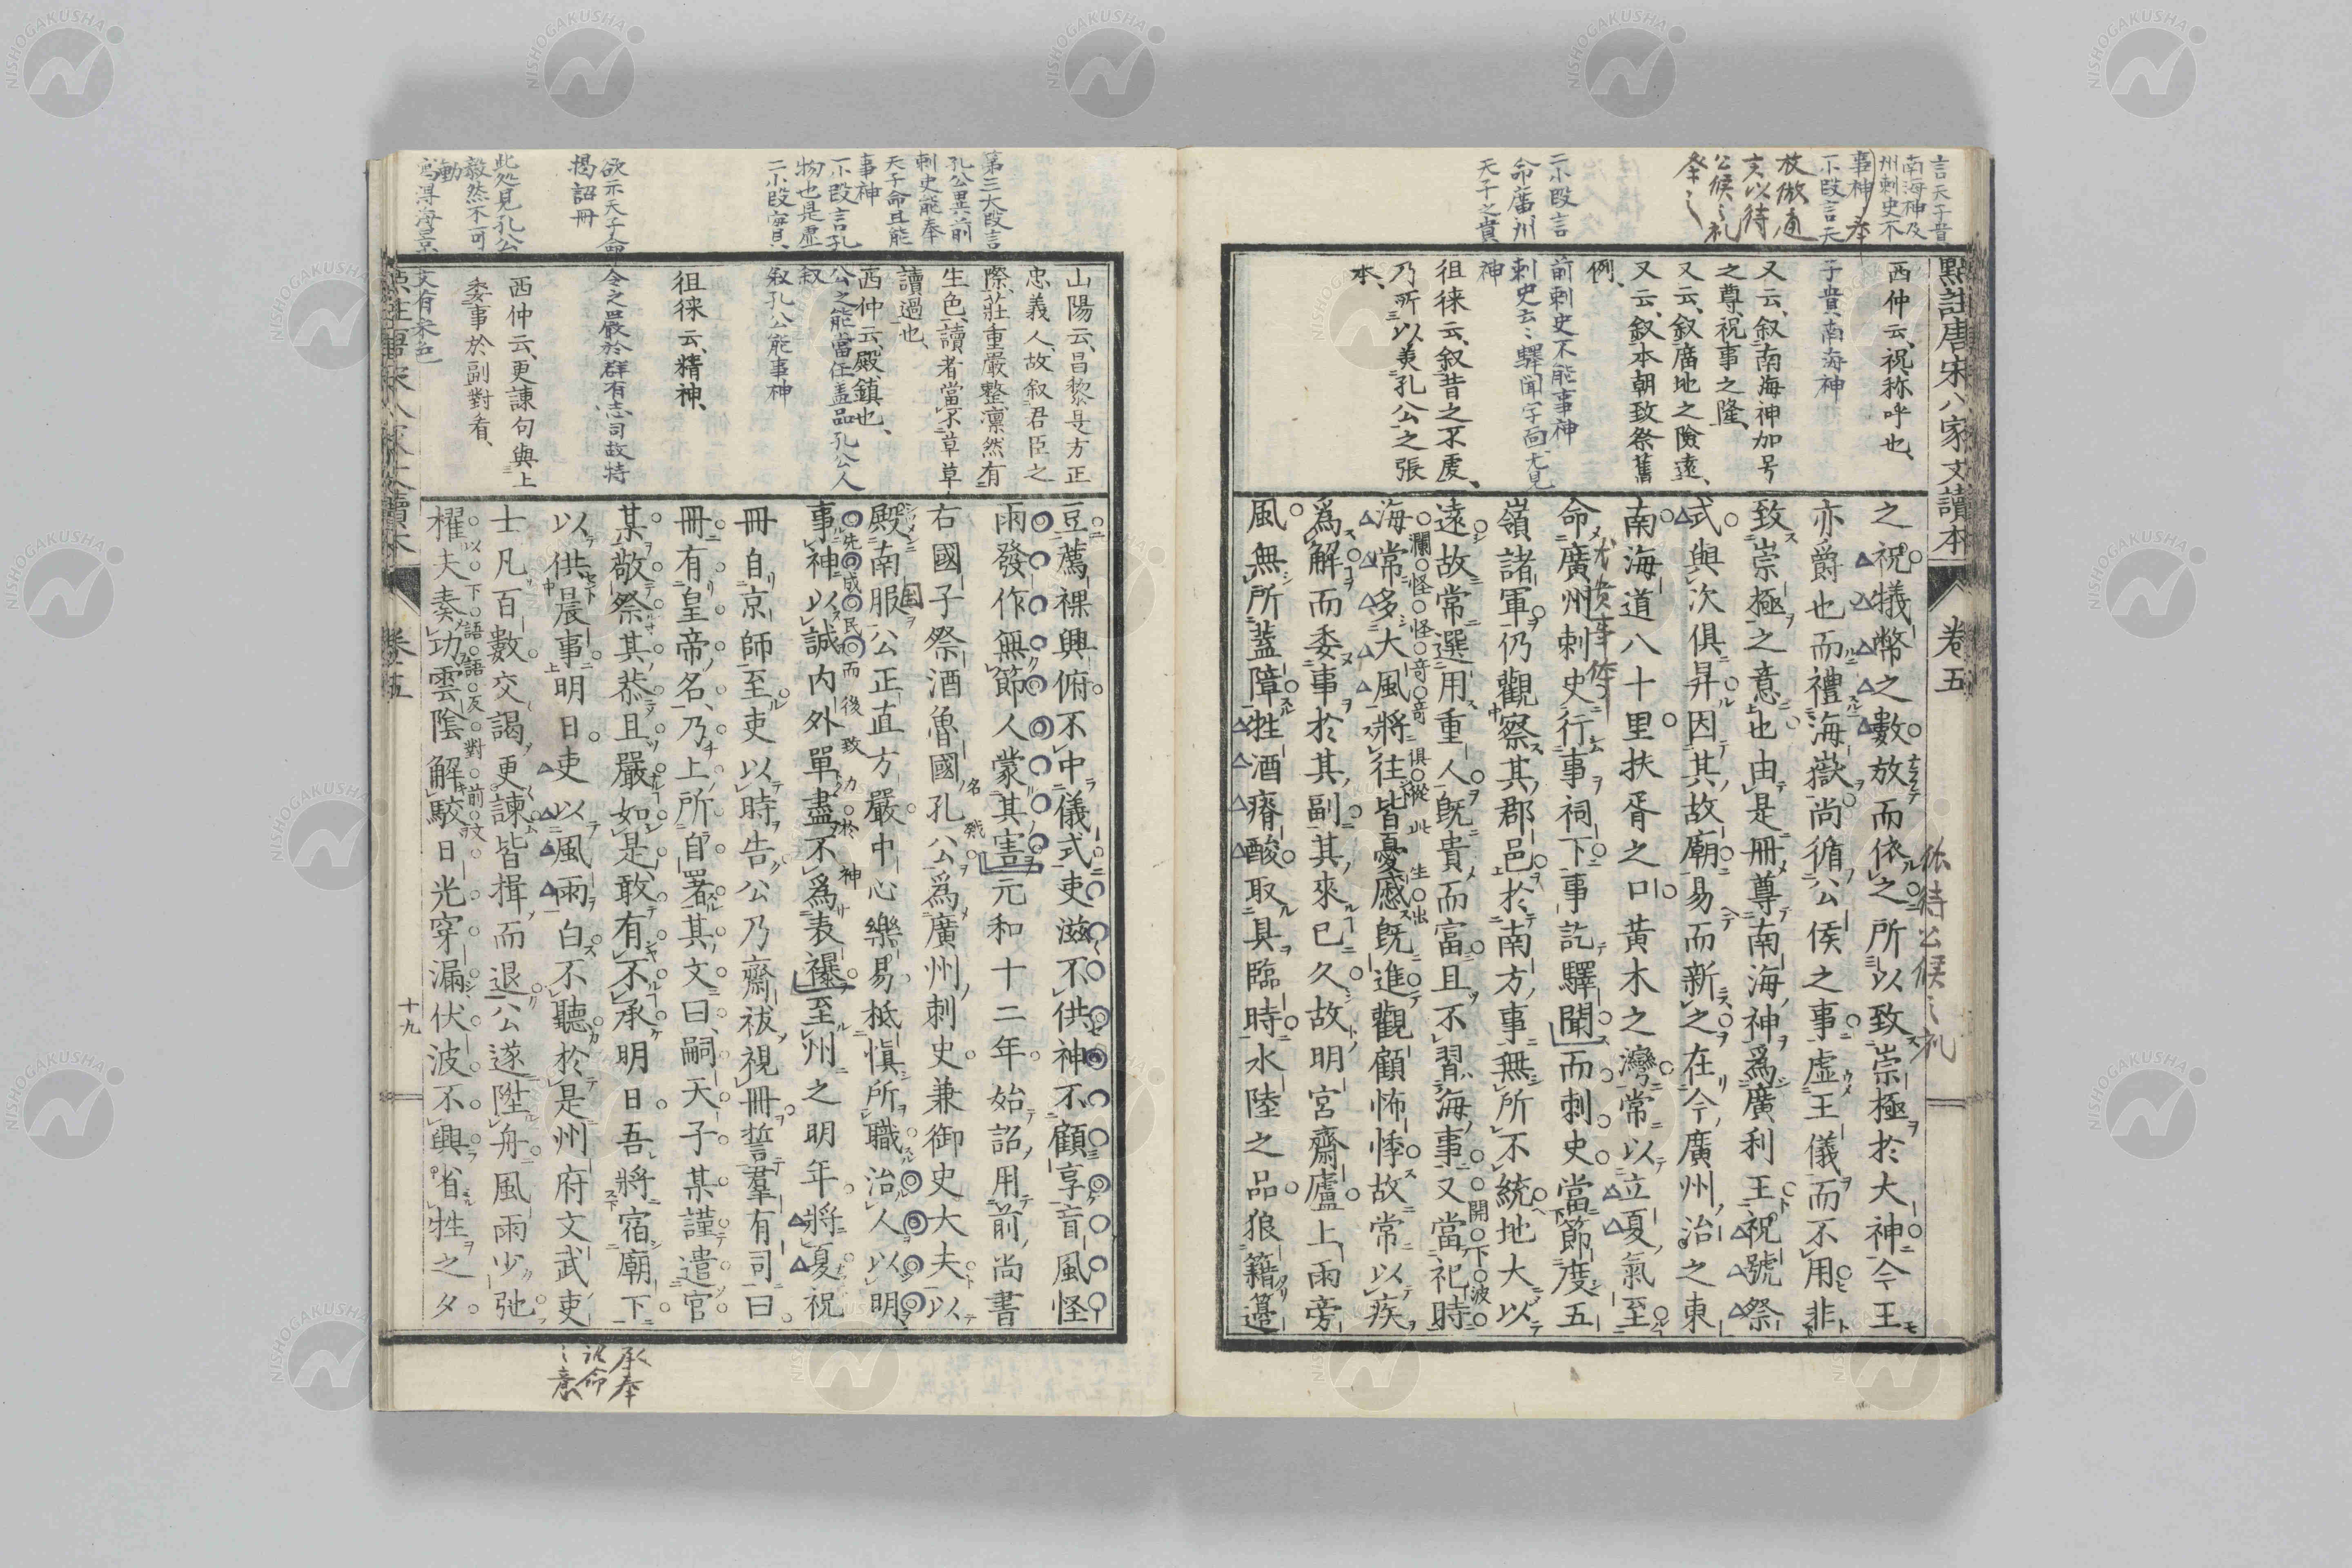 點註唐宋八家文讀本 卷五
西仲云、祝称呼也、
子貴南海神
又云、叙南海神加号
之尊、祝事之隆、
又云、叙廣地之險遠、
又云、叙本朝致祭舊
例、
前刺史不能事神
徂徠云、叙昔之不虔、
乃所以美孔公之張
本、
之祝犧幣之數放而依之所以致崇極於大神今王
亦爵也而禮海嶽尚循公侯之事虛王儀而不用非
致崇極之意也由是冊尊南海神爲廣利王祝號祭
式與次俱昇因其故廟易而新之在今廣州治之東
南海道八十里扶胥之口黃木之灣常以立夏氣至
命廣州刺史行事祠下事訖驛聞而刺史當節度五
嶺諸軍仍觀察其郡邑於南方事無所不統地大以
遠故常選用重人既貴而富且不習海事又當祀時
海常多大風將往皆憂慼既進觀顧怖悸故常以疾
爲解而委事於其副其來已久故明宮齋廬上雨旁
風無所蓋障牲酒瘠酸取具臨時水陸之品狼籍籩
言天子貴
南海神及
州刺史不
事神
下段言天
放倣通
公候之礼
祭之
二小段言
命廣州
天子之貴
依待公候之礼
山陽云、昌黎是方正
忠義人、故叙君臣之
際、莊重嚴整、凛然有
生色、讀者當不草草
讀過也、
西仲云、殿、鎮也、
公之能當任蓋品孔公人
叙孔公能事神
徂徠云、精神、
令之嚴於群有志司故特
西仲云、更諫句與上
委事於副對看、
豆薦祼興俯不中儀式吏滋不供神不顧享盲風怪
雨發作無節人蒙其害元和十二年始詔用前尚書
右國子祭酒魯國孔公爲廣州刺史兼御史大夫以
殿南服公正直方嚴中心樂易柢愼所職治人以明
事神以誠內外單盡不爲表襮至州之明年將夏祝
冊自京師至吏以時告公乃齋祓視冊誓羣有司曰
冊有皇帝名乃上所自署其文曰嗣天子某謹遣官
某敬祭其恭且嚴如是敢有不承明日吾將宿廟下
以供晨事明日吏以風雨白不聽於是州府文武吏
士凡百數交謁更諫皆揖而退公遂陞舟風雨少弛
櫂夫奏功雲陰解駮日光穿漏伏波不興省牲之夕
十九
第三大段言
孔公異前
刺史能奉
天子命且能
事神
下段言孔
物也是虛
叙
欲示天子命
揭詔冊
此処見孔公
毅然不可
動
承奉
詔命
之意